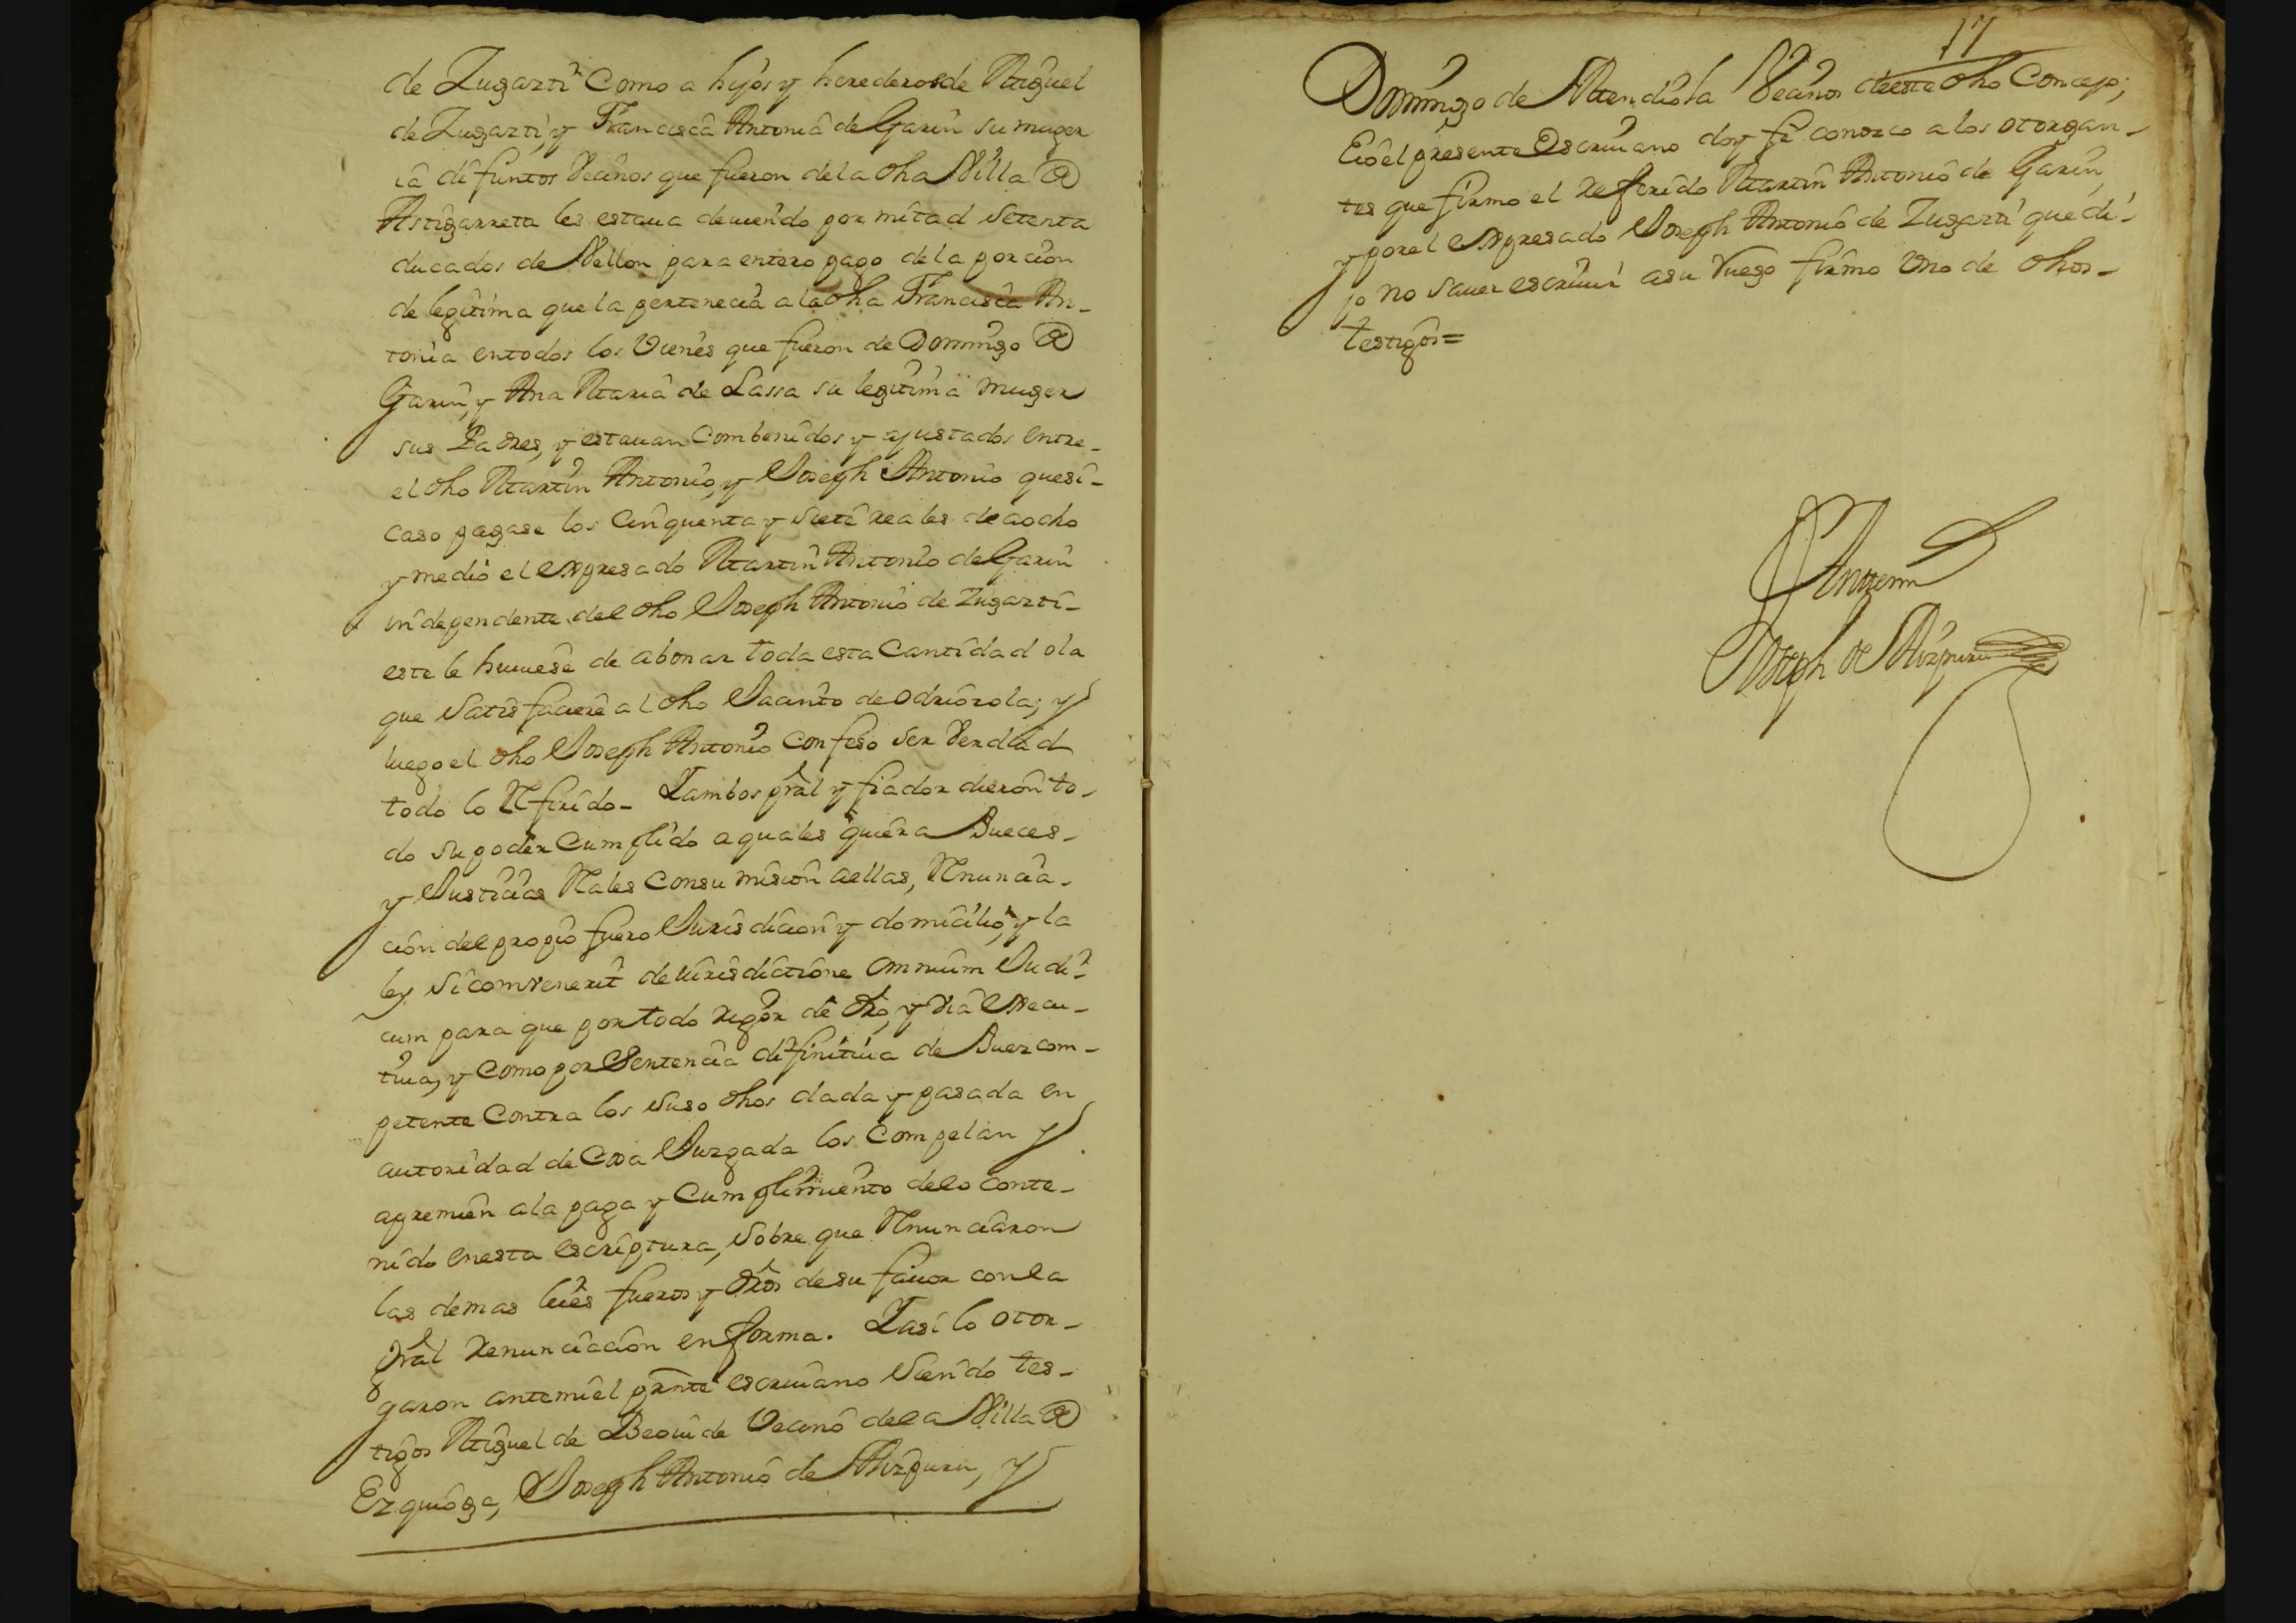 de Zugarti Como a hijos y herederos de Miguel
de Zugarti, y Francisca Antonia de Garin su muger
ia difuntos Vecinos que fueron de la dha Villa de
Astigarreta les estaua deuiendo por mitad Setenta
ducados de Vellon para entero pago de la porcion
de legitima que la pertenecia a la dha Francisca An-
tonia en todos los Vienes que fueron de Domingo de
Garin, y Ana Maria de Lassa su legitima muger
sus Padres, y estauan Combenidos y ajustados entre-
el dho Martin Antonio, y Joseph Antonio que si-
caso pagase los Cinquenta y Siete reales de a ocho
y medio el expresado Martin Antonio de Garin
independente del dho Joseph Antonio de Zugarti-
este le huuiese de abonar toda esta Cantidad o la
que Satisfaciere al dho Jacinto de Odriozola; y
luego el dho Joseph Antonio Confeso Ser Verdad
todo lo Referido- Y ambos pral y fiador dieron to-
do su poder Cumplido a quales quiera Jueces-
y Justicias Rales Con su mision a ellas, Renuncia-
cion del propio fuero Jurisdicion y domicilio, y la
ley Si comvenerit de iurisdictione omnium Judi-
cum para que por todo rigor de dro, y via Execu-
tiua, y Como por Sentencia difinitiua de Juez com-
petente Contra los Suso dhos dada y pasada en
autoridad de Cosa Juzgada los Compelan y
apremien a la paga y Cumplimiento de lo conte-
nido en esta escriptura, Sobre que Renunciaron
las demas leies fueros y dros de su fauor con la
gral renunciacion en forma. Y asi lo otor-
garon ante mi el prnte escriuano Siendo tes-
tigos Miguel de Beouide Vecino de la Villa de
Ezquioga, Joseph Antonio de Aizpuru, y
17
Domingo de Mendiola Vecinos de este dho Concejo;
E io el presente Escriuano doy fe conozco a los otorgan-
tes que firmo el referido Martin Antonio de Garin,
y por el expresado Joseph Antonio de Zugarti que di-
jo no Sauer escriuir a su ruego firmo Uno de dhos-
testigos=
Ante mi
Joseph de Aizpuru